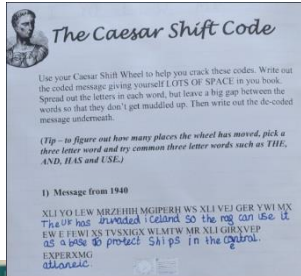 The Caesar Shift Code
Use your Caesar Shift Wheel to help you crack these codes. Write out
the coded message giving yourself LOTS OF SPACE in you book.
Spread out the letters in each word, but leave a big gap between the
words so that they don't get muddled up. Then write out the de-coded
message underneath.
(Tip – to figure out how many places the wheel has moved, pick a
three letter word and try common three letter words such as THE,
AND, HAS and USE.)
1) Message from 1940
XLI YO LEW MRZEHIH MGIPERH WS XLI VEJ GER YWI MX
The UK has invaded iceland so the rag can use it
EW E FEWI XS TVSXIGX WLMTW MR XLI GIRXVEP
as a base to protect ships in the central.
EXPERXMG
atlaneic.